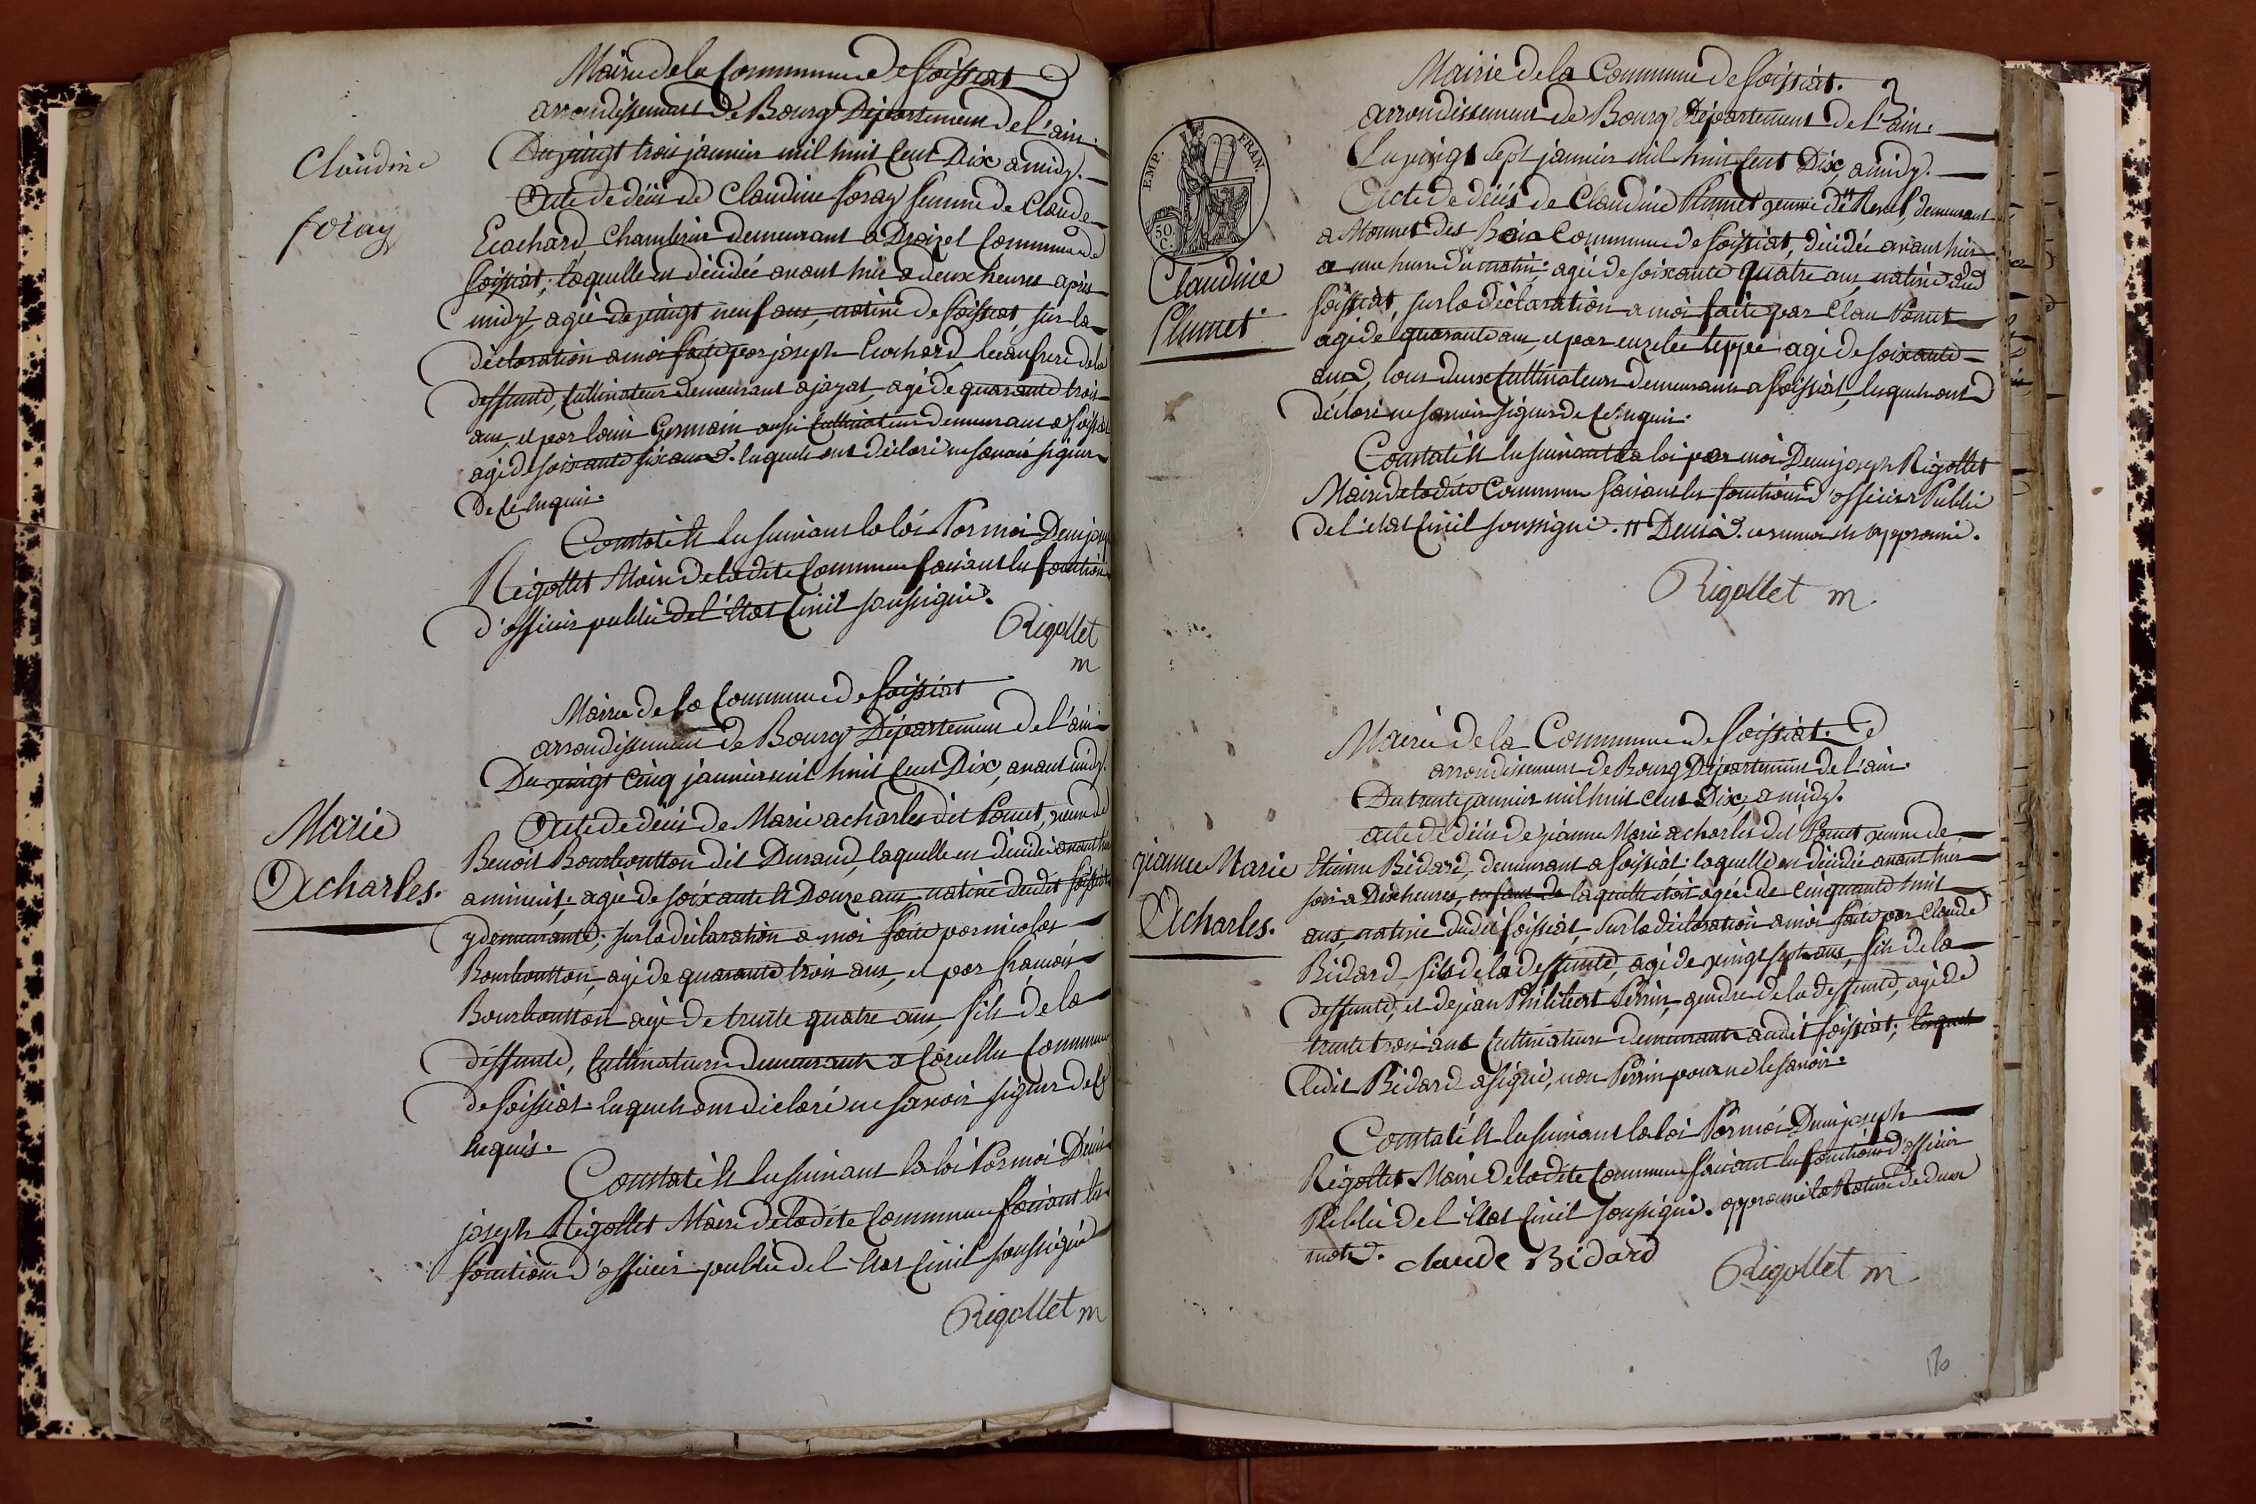 Mairie de la Commune de foissiat
arrondissement de Bourg Département de l'ain.
Du vingt trois janvier mil huit Cent Dix a midy.
Claudine
foray
Acte de décès de Claudine foray femme de Claude
Ecochard Chambrier demeurant a Droizel Commune de
foissiat; laquelle est décédée avant hier a deux heures après
midy, agée de vingt neuf ans, native de foissiat, sur la
déclaration a moi faite par joseph Ecochard, beaufrere de la
deffunte, Cultivateur demeurant a jayat, agé de quarante trois
ans, et par louis Germain aussi Cultivateur demeurant a foissiat
agé de soixante six ans. lequels ont déclaré ne savoir signer
de ce requis.
Constaté et lu suivant la loi Par moi Denis joseph
Rigollet Maire de la dite Commune faisant les fonctions
d'officier public de l'état Civil soussigné.
Rigollet
m
Mairie de la Commune de foissiat
arrondissement de Bourg Département de l'ain
Du vingt Cinq janvier mil huit Cent Dix, avant midy.
Marie
Acharles.
Acte de décès de Marie acharles dit Ponet, veuve de
Benoit Bourboutton dit Durand, laquelle est décédée avant hier
a minuit, agée de soixante et Douze ans, native dudit foissiat
y demeurante; sur la déclaration a moi faite par nicolas
Bourboutton, agé de quarante trois ans, et par françois
Bourboutton agé de trente quatre ans, fils de la
deffunte, Cultivateurs demeurants a Commune
de foissiat. lequels ont déclaré ne savoir signer de ce
requis.
Constaté et lu suivant la loi Par moi Denis
joseph Rigollet Maire de la dite Commune faisant les
fonctions d'officier public de l'état Civil soussigné
Rigollet m
Mairie de la Commune de foissiat.
3
arrondissement de Bourg Département de l'ain.
Du vingt sept janvier mil huit Cent Dix, a midy.
EMP. FRAN.
50 C.
Claudine
Plumet
Acte de décès de Claudine Plumet veuve demeurant
a Monnet des Bois Commune de foissiat, décédée avant hier
a une heure du matin. agée de soixante quatre ans, native dud
foissiat, sur la déclaration a moi faite par Clau Ponet
agé de quarante ans, et par teppe agé de soixante
ans, tous deux Cultivateurs demeurants a foissiat, lequels ont
déclaré ne savoir signer de ce requis.
Constaté et lu suivant la loi par moi Denis joseph Rigollet
Maire de la dite Commune faisant les fonctions d'officier Public
de l'état Civil soussigné. ce renvoi est approuvé.
Rigollet m.
Mairie de la Commune de foissiat.
arrondissement de Bourg Département de l'ain.
Du trente janvier mil huit cent Dix, a midy.
jeanne Marie
Acharles.
acte de décès de jeanne Marie acharles dit Ponet veuve de
Etienne Bidard, demeurant a foissiat; laquelle est décédée avant hier
soir a Dix heures, laquelle etoit agée de Cinquante huit
ans, native dudit foissiat, sur la déclaration a moi faite par Claude
Bidard, fils de la deffunte, agé de vingt sept ans, fils de la
deffunte, et de jean Philibert Perrin, gendre de la deffunte, agé de
trente trois ans Cultivateurs demeurants audit foissiat; lesquels
ledit Bidard a signé, non Perrin pour ne le savoir.
Constaté et lu suivant la loi Par moi Denis joseph
Rigollet Maire de la dite Commune faisant les fonctions d'officier
Public de l'état Civil soussigné. approuvé la Rature de deux
mots.
claude Bidard
Rigollet m